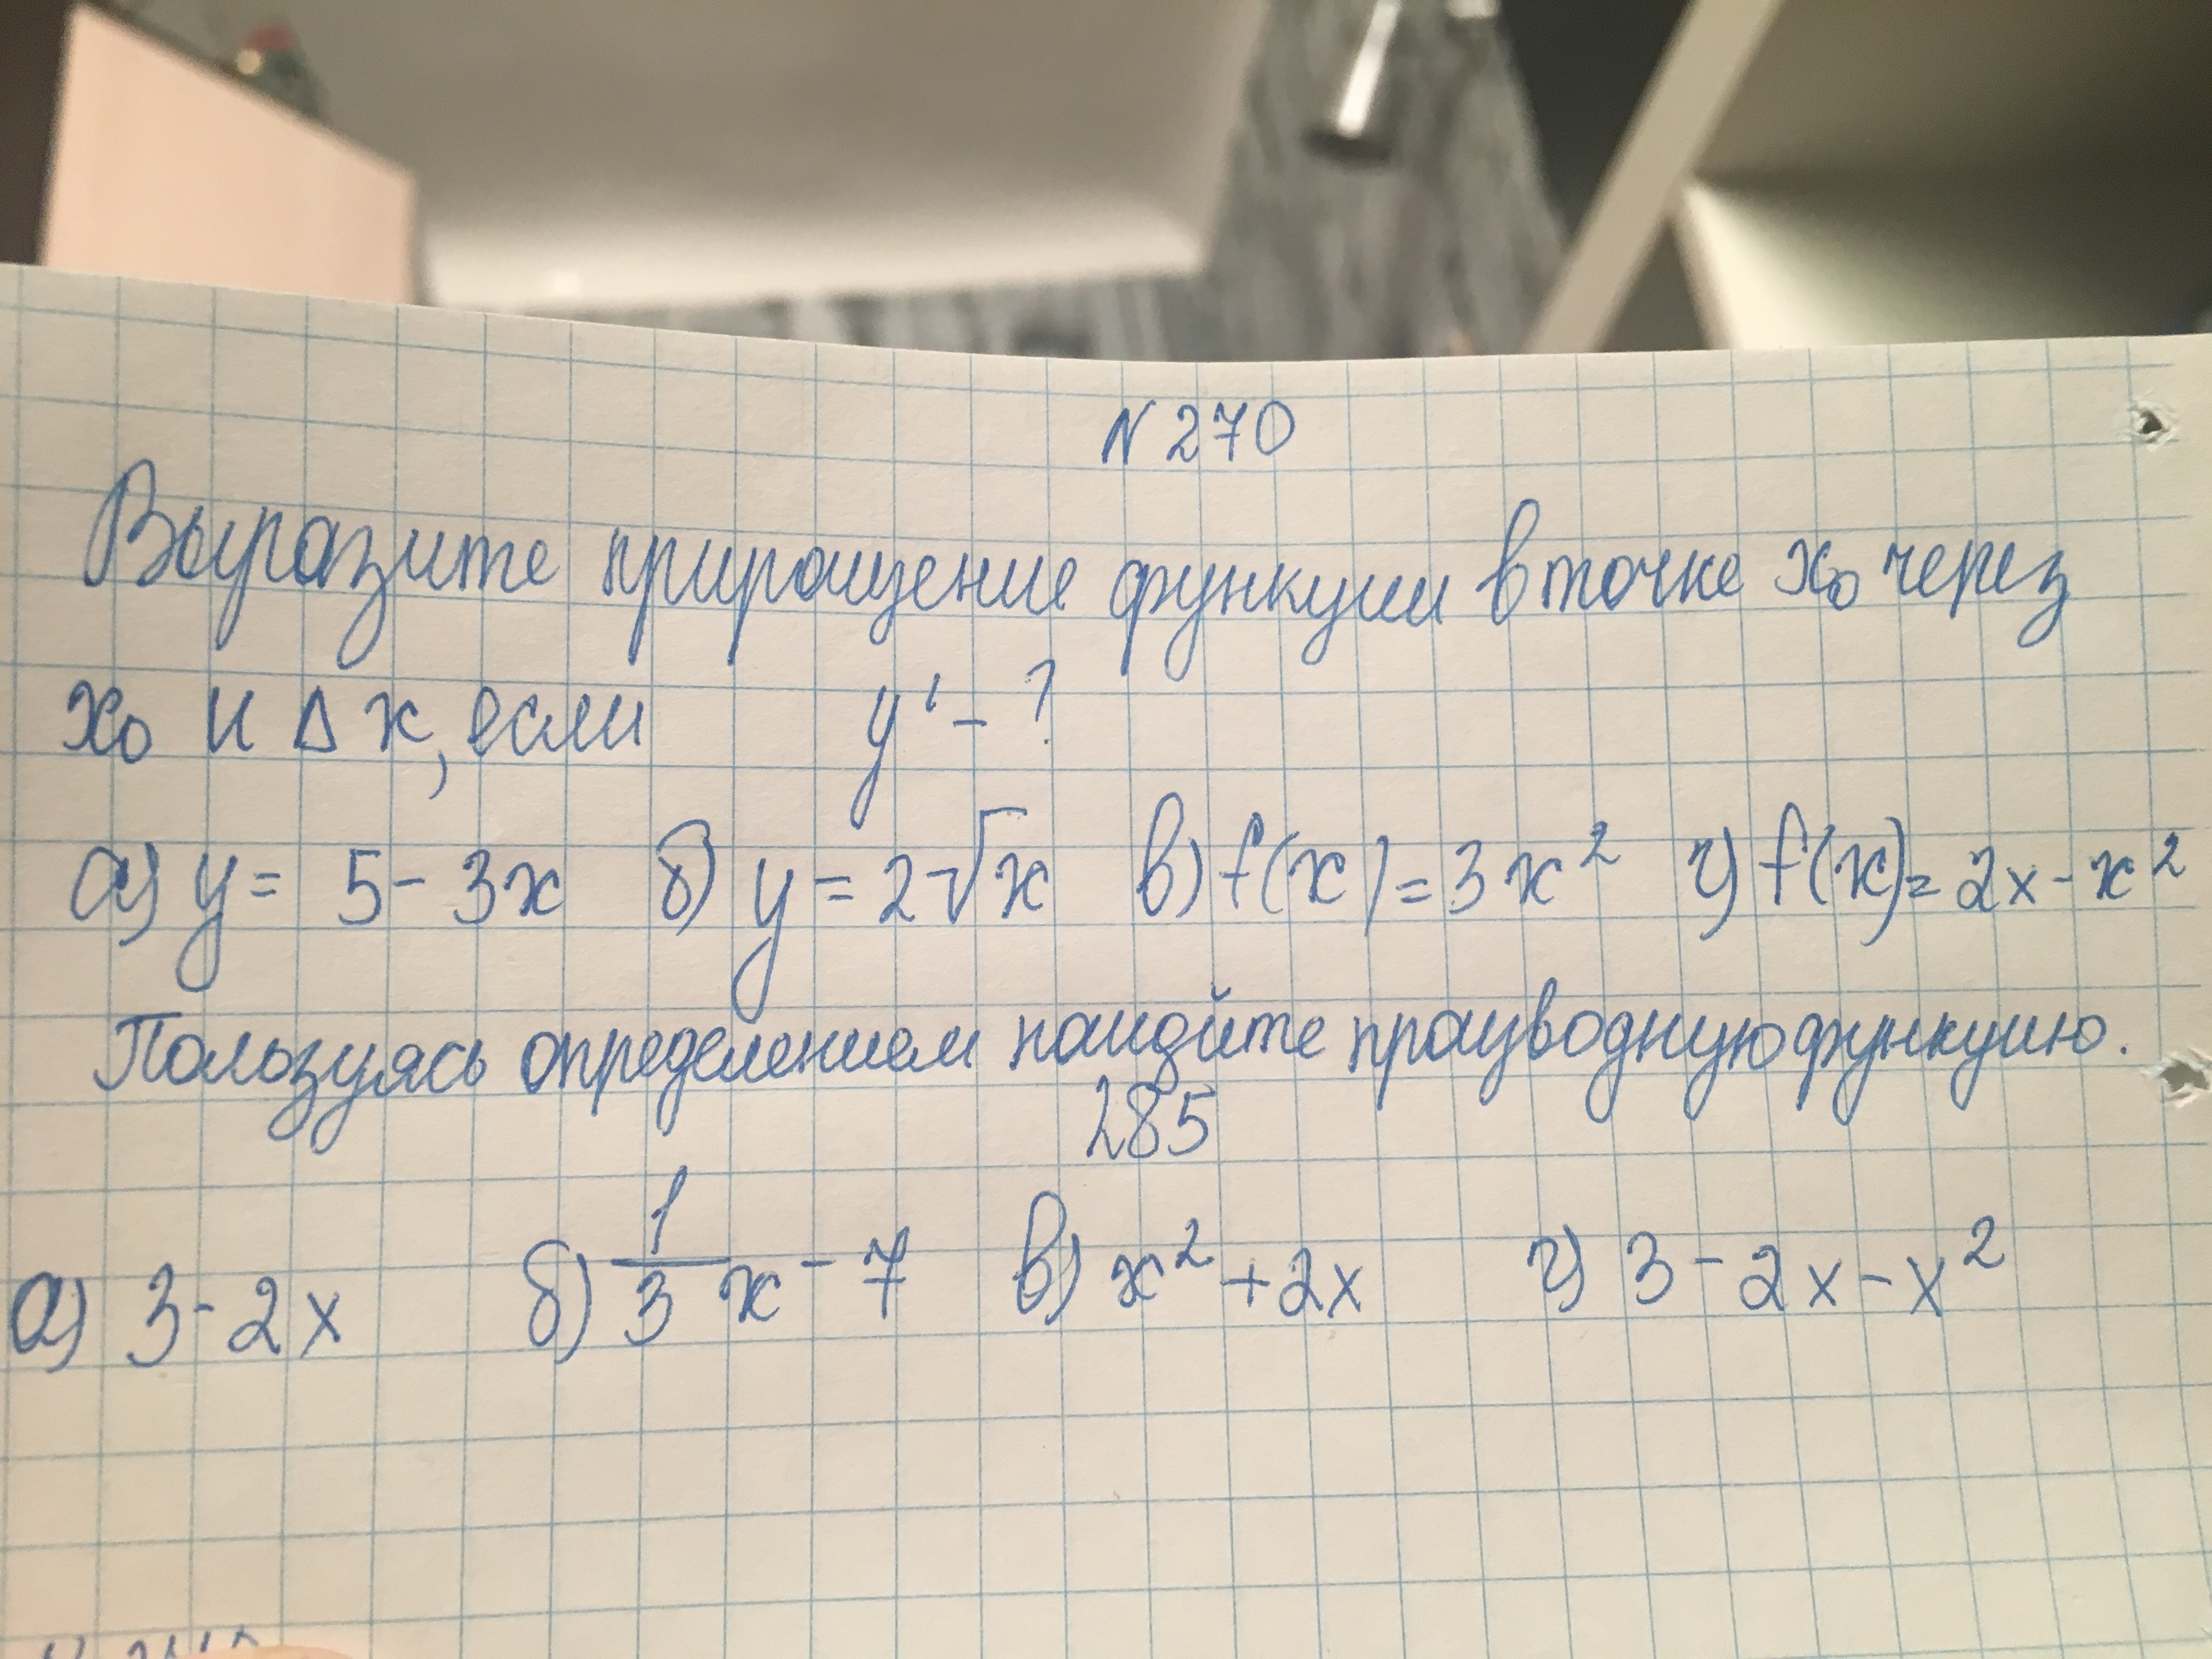 N 270
Выразите приращение функции в точке x₀ через
x₀ и Δx, если y' - ?
а) y = 5 - 3x б) y = 2√x в) f(x) = 3x² г) f(x) = 2x - x²
Пользуясь определением найдите производную функцию.
285
а) 3 - 2x б) 1/3 x - 7 в) x² + 2x г) 3 - 2x - x²